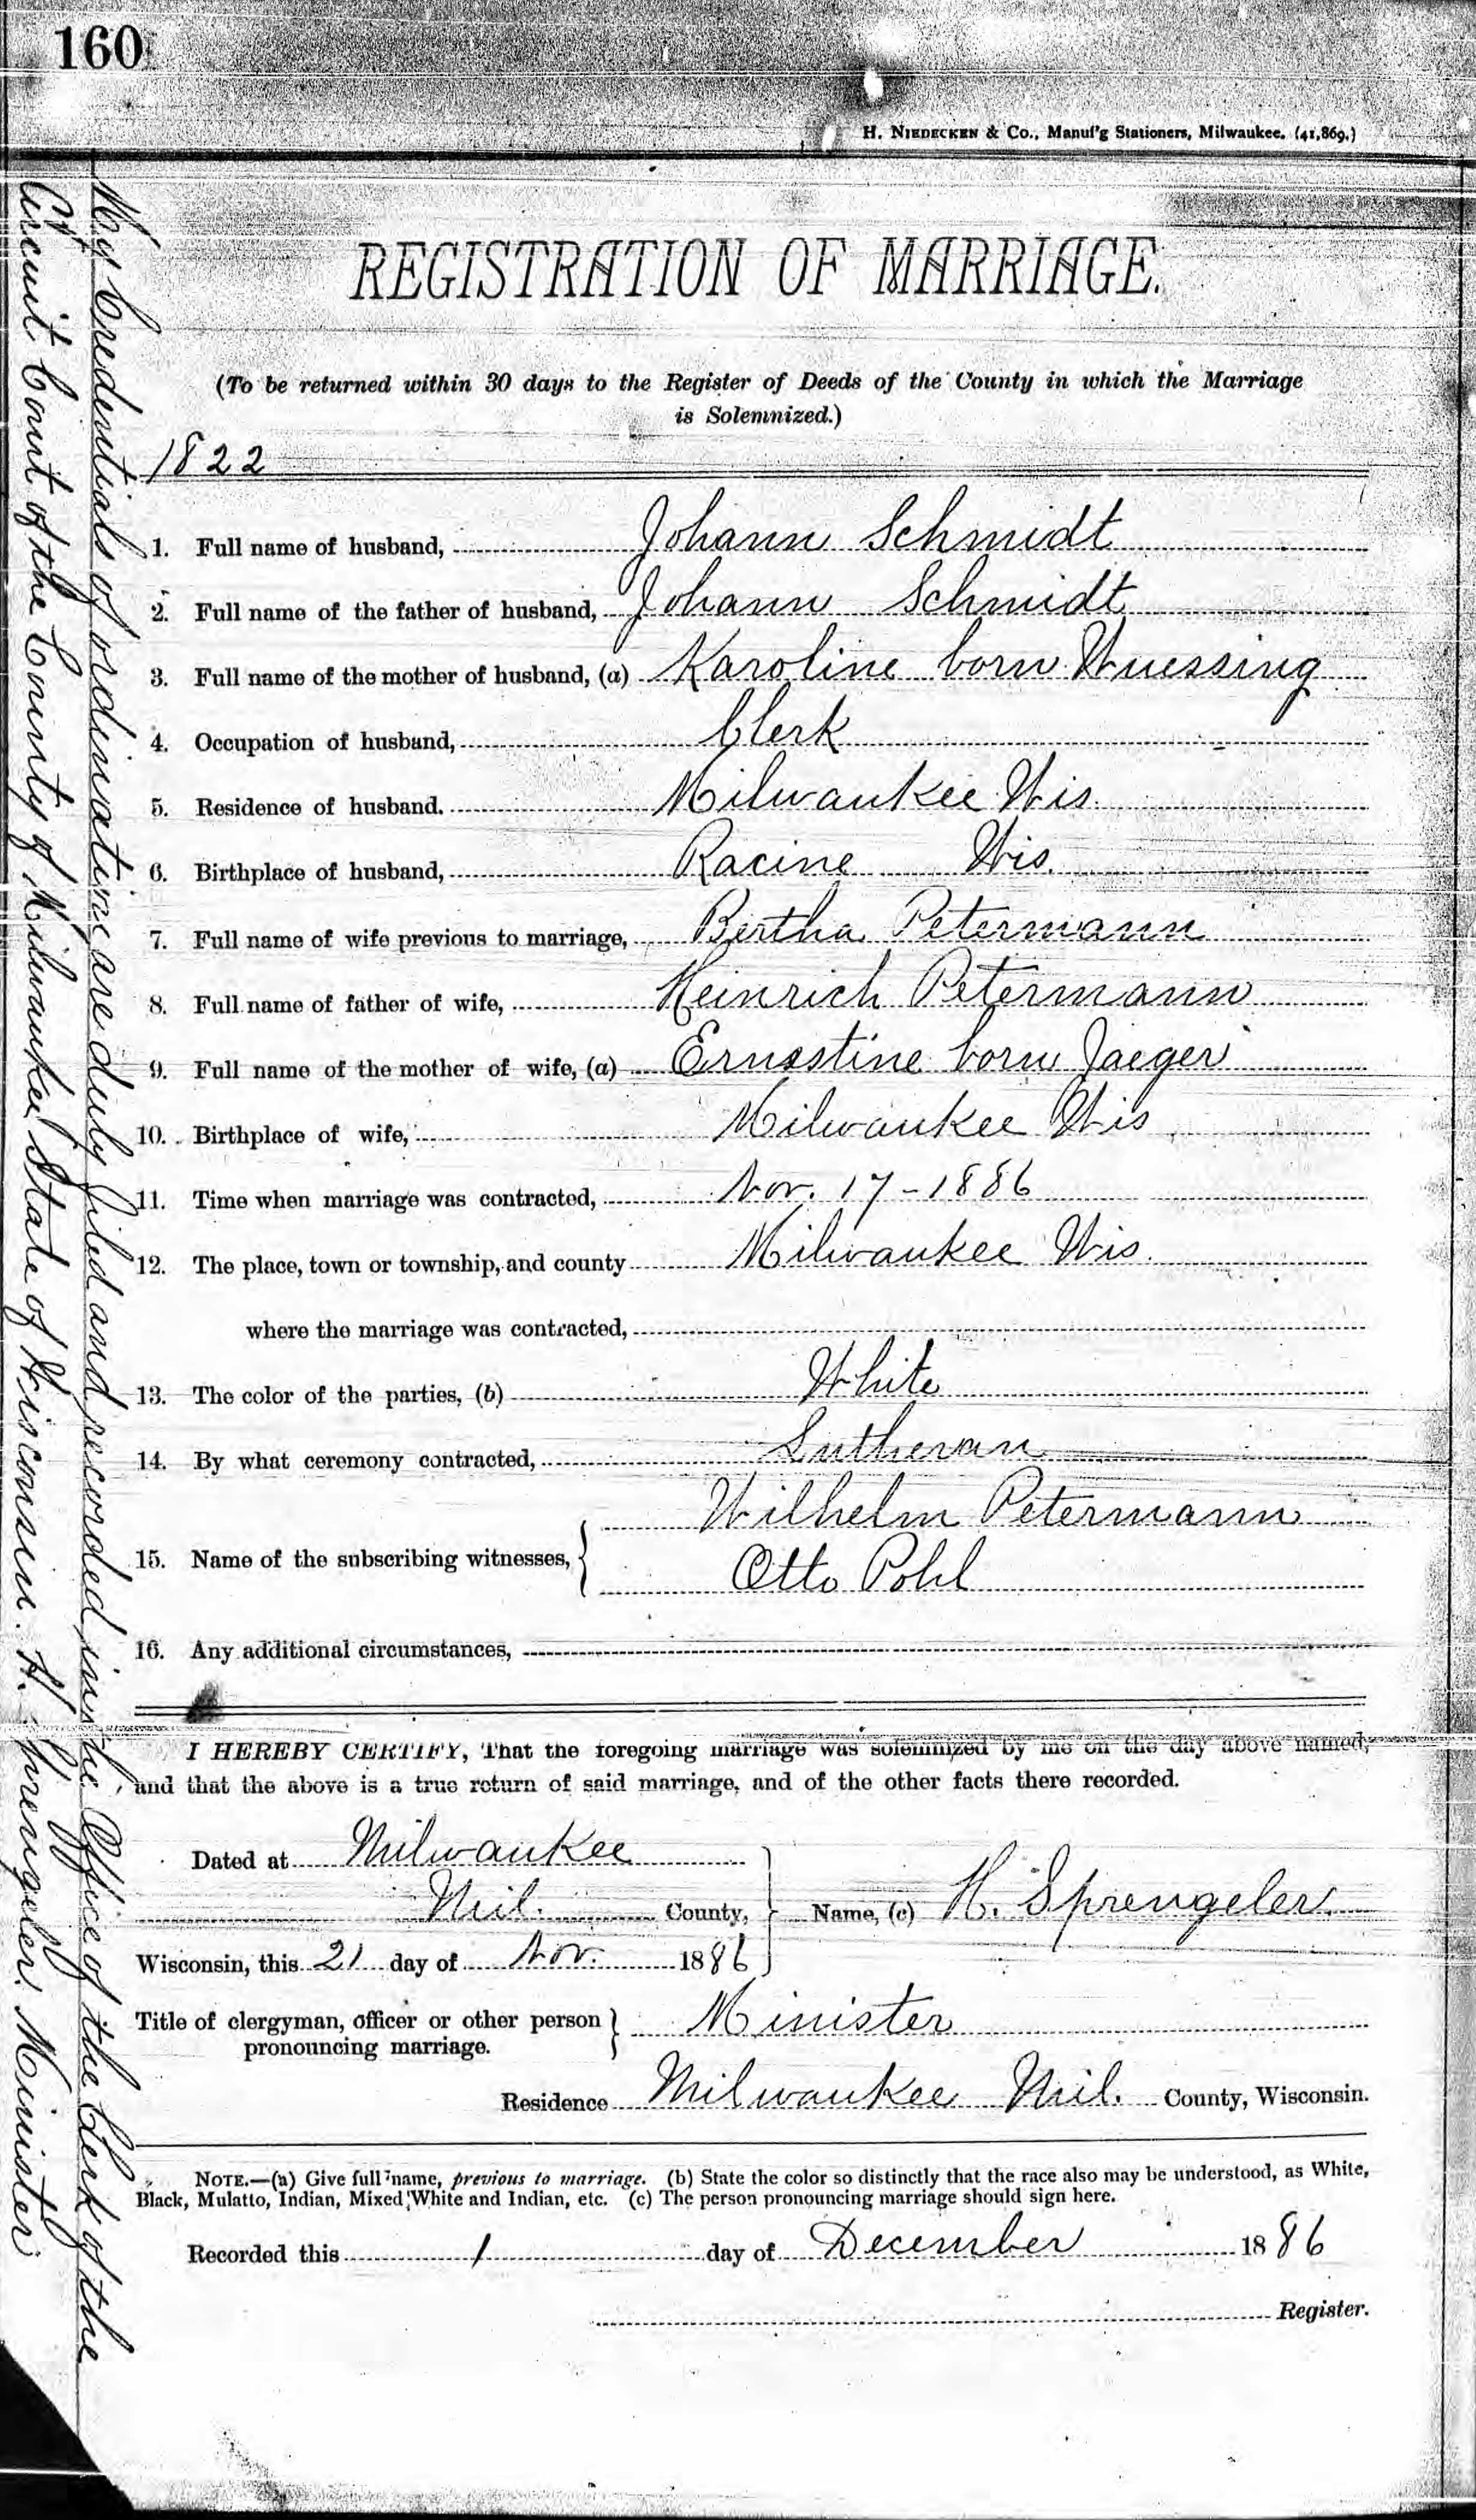 160
H. Niedecken & Co., Manuf'g Stationers, Milwaukee. (41,869.)
REGISTRATION OF MARRIAGE.
(To be returned within 30 days to the Register of Deeds of the County in which the Marriage
is Solemnized.)
1822
1. Full name of husband, Johann Schmidt
2. Full name of the father of husband, Johann Schmidt
3. Full name of the mother of husband, (a) Karoline born Wuessing
4. Occupation of husband, Clerk
5. Residence of husband. Milwaukee Wis.
6. Birthplace of husband, Racine Wis.
7. Full name of wife previous to marriage, Bertha Petermann
8. Full name of father of wife, Heinrich Petermann
9. Full name of the mother of wife, (a) Ernestine born Jaeger
10. Birthplace of wife, Milwaukee Wis
11. Time when marriage was contracted, Nov. 17-1886
12. The place, town or township, and county Milwaukee Wis.
where the marriage was contracted,
13. The color of the parties, (b) White
14. By what ceremony contracted, Lutheran
Wilhelm Petermann
15. Name of the subscribing witnesses,
Otto Pohl
16. Any additional circumstances,
I HEREBY CERTIFY, That the foregoing marriage was solemnized by me on the day above named,
and that the above is a true return of said marriage, and of the other facts there recorded.
Dated at Milwaukee
Mil. County, Name, (c) H. Sprengeler
Wisconsin, this 21 day of Nov. 1886
Title of clergyman, officer or other person Minister
pronouncing marriage.
Residence Milwaukee Mil. County, Wisconsin.
NOTE.—(a) Give full name, previous to marriage. (b) State the color so distinctly that the race also may be understood, as White,
Black, Mulatto, Indian, Mixed White and Indian, etc. (c) The person pronouncing marriage should sign here.
Recorded this 1 day of December 1886
Register.
My credentials of ordination are duly filed and recorded in the Office of the Clerk of the
Circuit Court of the County of Milwaukee State of Wisconsin. H. Sprengeler. Minister.